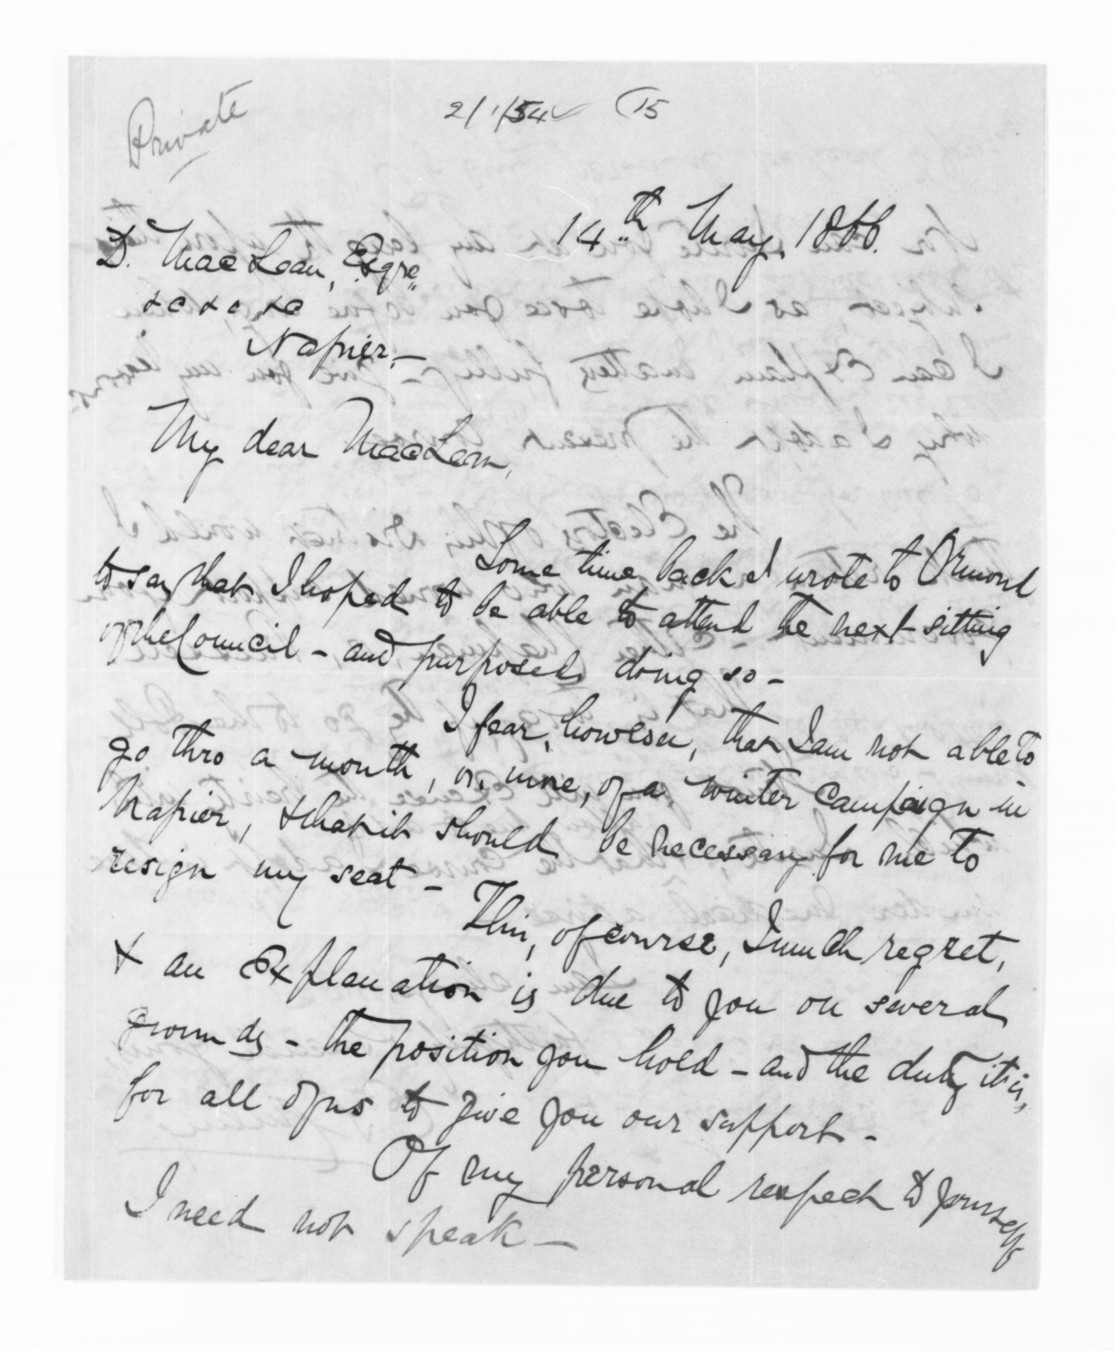 Private
2/1/54 (15
14th May, 1866.
D. MacLean, Esqre,
&c &c &c
Napier.—
My dear MacLean,
Some time back I wrote to Ormond
to say that I hoped to be able to attend the next sitting
of the Council - and purposed doing so -
I fear, however, that I am not able to
go thro a month, or, more, of a winter campaign in
Napier, & that it should be necessary for me to
resign my seat -
This, of course, I much regret,
& an explanation is due to you on several
grounds - the position you hold - and the duty it is,
for all of us to give you our support -
Of my personal respect to yourself
I need not speak —